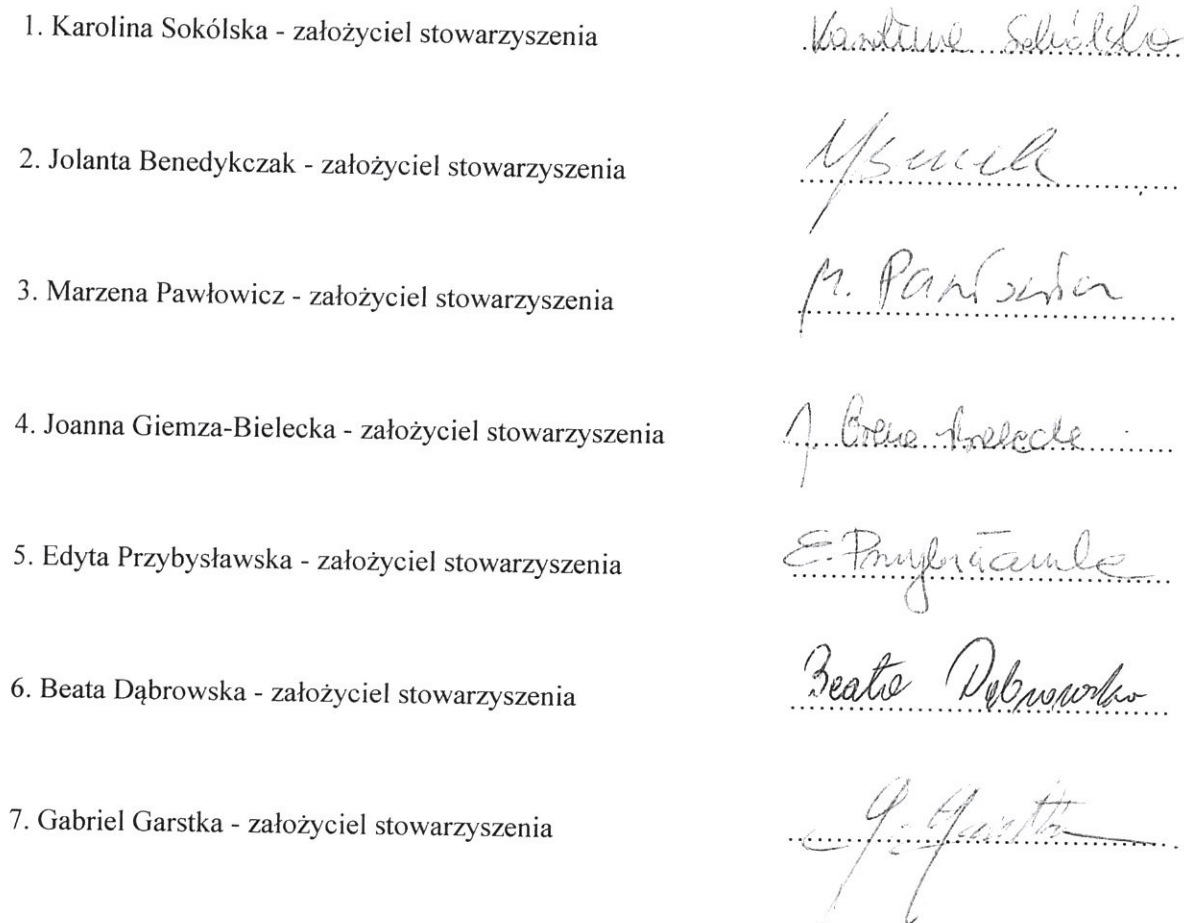 1. Karolina Sokólska - założyciel stowarzyszenia Karolina Sokólska
2. Jolanta Benedykczak - założyciel stowarzyszenia
3. Marzena Pawłowicz - założyciel stowarzyszenia M. Pawłowicz
4. Joanna Giemza-Bielecka - założyciel stowarzyszenia
5. Edyta Przybysławska - założyciel stowarzyszenia E. Przybysławska
6. Beata Dąbrowska - założyciel stowarzyszenia Beata Dąbrowska
7. Gabriel Garstka - założyciel stowarzyszenia G. Garstka